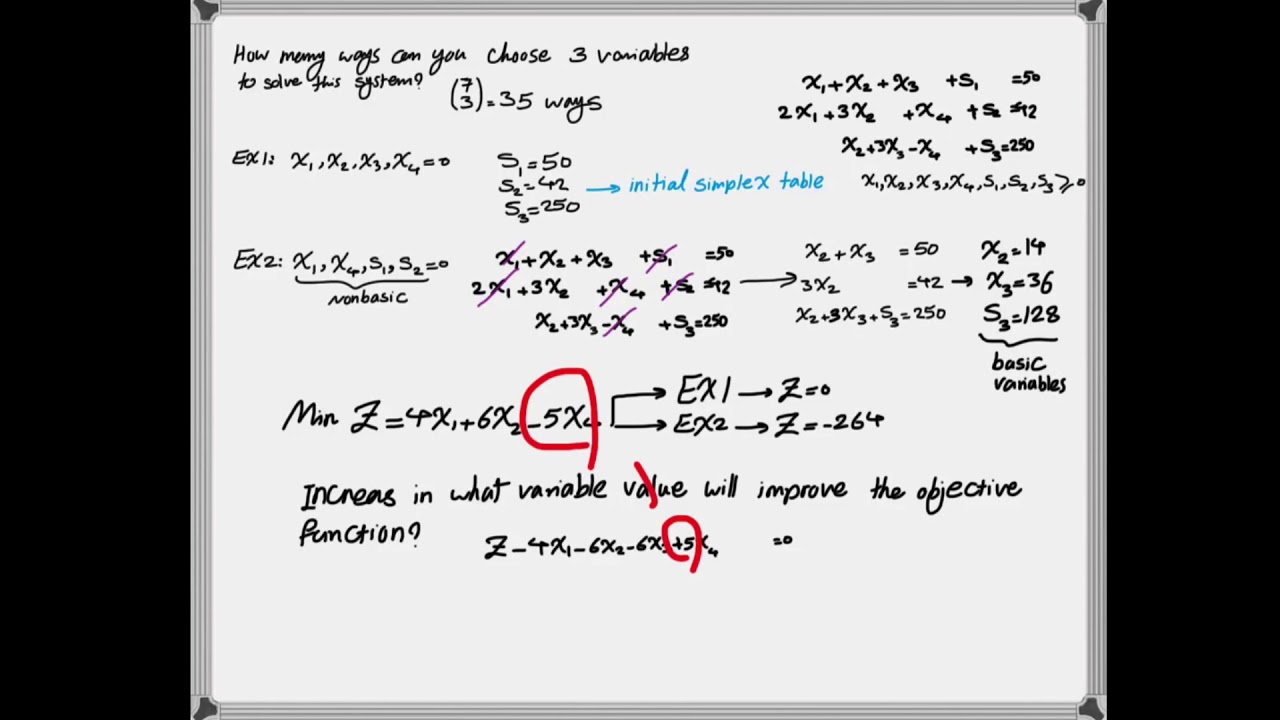 How meny ways can you choose 3 variables
to solve this system? (7 3) = 35 ways
x₁+x₂+x₃ +s₁ =50
2x₁+3x₂ +x₄ +s₂ =42
x₂+3x₃-x₄ +s₃=250
x₁,x₂,x₃,x₄,s₁,s₂,s₃≥0
EX1: x₁,x₂,x₃,x₄=0
S₁=50
S₂=42 → initial simplex table
S₃=250
EX2: x₁,x₄,s₁,s₂=0
nonbasic
x₁+x₂+x₃ +s₁ =50
2x₁+3x₂ +x₄ +s₂ =42
x₂+3x₃-x₄ +s₃=250
x₂+x₃ =50
3x₂ =42 →
x₂+3x₃+s₃=250
x₂=14
x₃=36
S₃=128
basic
variables
Min Z=4x₁+6x₂-5x₄
EX1 → Z=0
EX2 → Z=-264
Increas in what variable value will improve the objective
function?
Z-4x₁-6x₂-6x₃+5x₄ =0